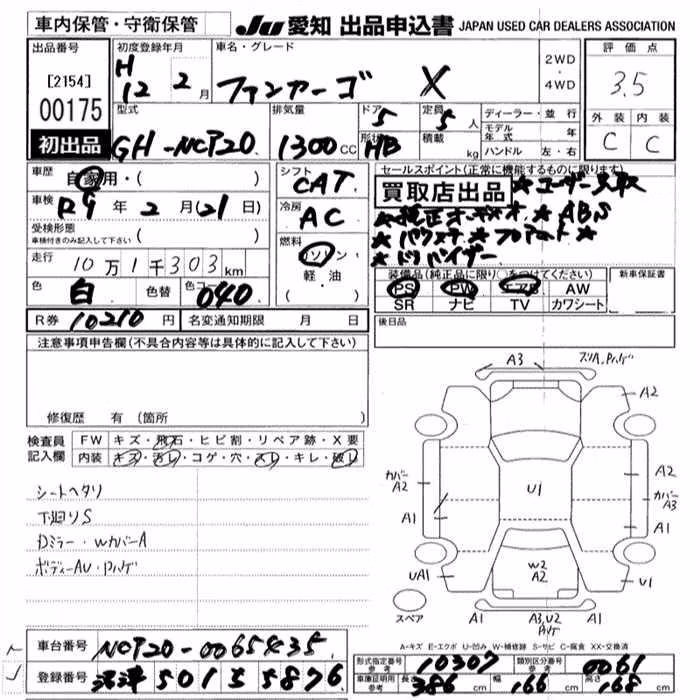 車内保管・守衛保管 Ju 愛知 出品申込書 JAPAN USED CAR DEALERS ASSOCIATION
出品番号 初度登録年月 車名・グレード 評価点
[2154] H 12 2月 ファンカーゴ X 2WD・4WD 3.5
00175 型式 排気量 ドア 定員 ディーラー・並行 外装 内装
初出品 GH-NCP20 1300CC 5 5人 モデル年式 年 C C
形状 HB 積載 kg ハンドル 左・右
車歴 自家用・( ) シフト CAT セールスポイント(正常に機能するものに限ります)
車検 R9年2月(21日) 冷房 AC 買取店出品 ★ユーザー買取
受検形態 ( ) ★純正オーディオ★ABS
車検付きのみ記入して下さい
★パワステ★フロアマット★
★ドアバイザー
走行 10万1千303km 燃料 ガソリン・軽・油( )
装備品(純正品に限り○をつけてください) 新車保証書
色 白 色替 色コード 040 PS PW エアB AW
SR ナビ TV カワシート
R券 10210円 名変通知期限 月 日 後日品
注意事項申告欄(不具合内容等は具体的に記入して下さい)
修復歴 有 (箇所
検査員記入欄 FW キズ・飛石・ヒビ割・リペア跡・X要
内装 キズ・汚レ・コゲ・穴・スレ・キレ・破レ
シートヘタリ
下廻りS
Dミラー・WカバーA
ボディーAU・Pハゲ
A3 スリA,Pハゲ
A2
カバーA2 A2
U1 カバーA3
A1 A1
UA1 W2 A2 U1
スペア A1 A3,U2 Pハゲ A1
A-キズ E-エクボ U-凹み W-補修跡 S-サビ C-腐食 XX-交換済
車台番号 NCP20-0065435
登録番号 沼津 501 5876
形式指定番号 参考 10307 類別区分番号 参考 0061
車庫証明用参考 長さ 386cm 幅 166cm 高さ 168cm